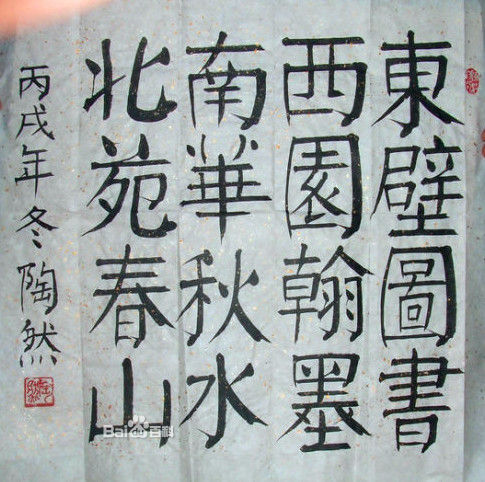 東壁圖書
西園翰墨
南華秋水
北苑春山
丙戌年冬陶然
Bai百科